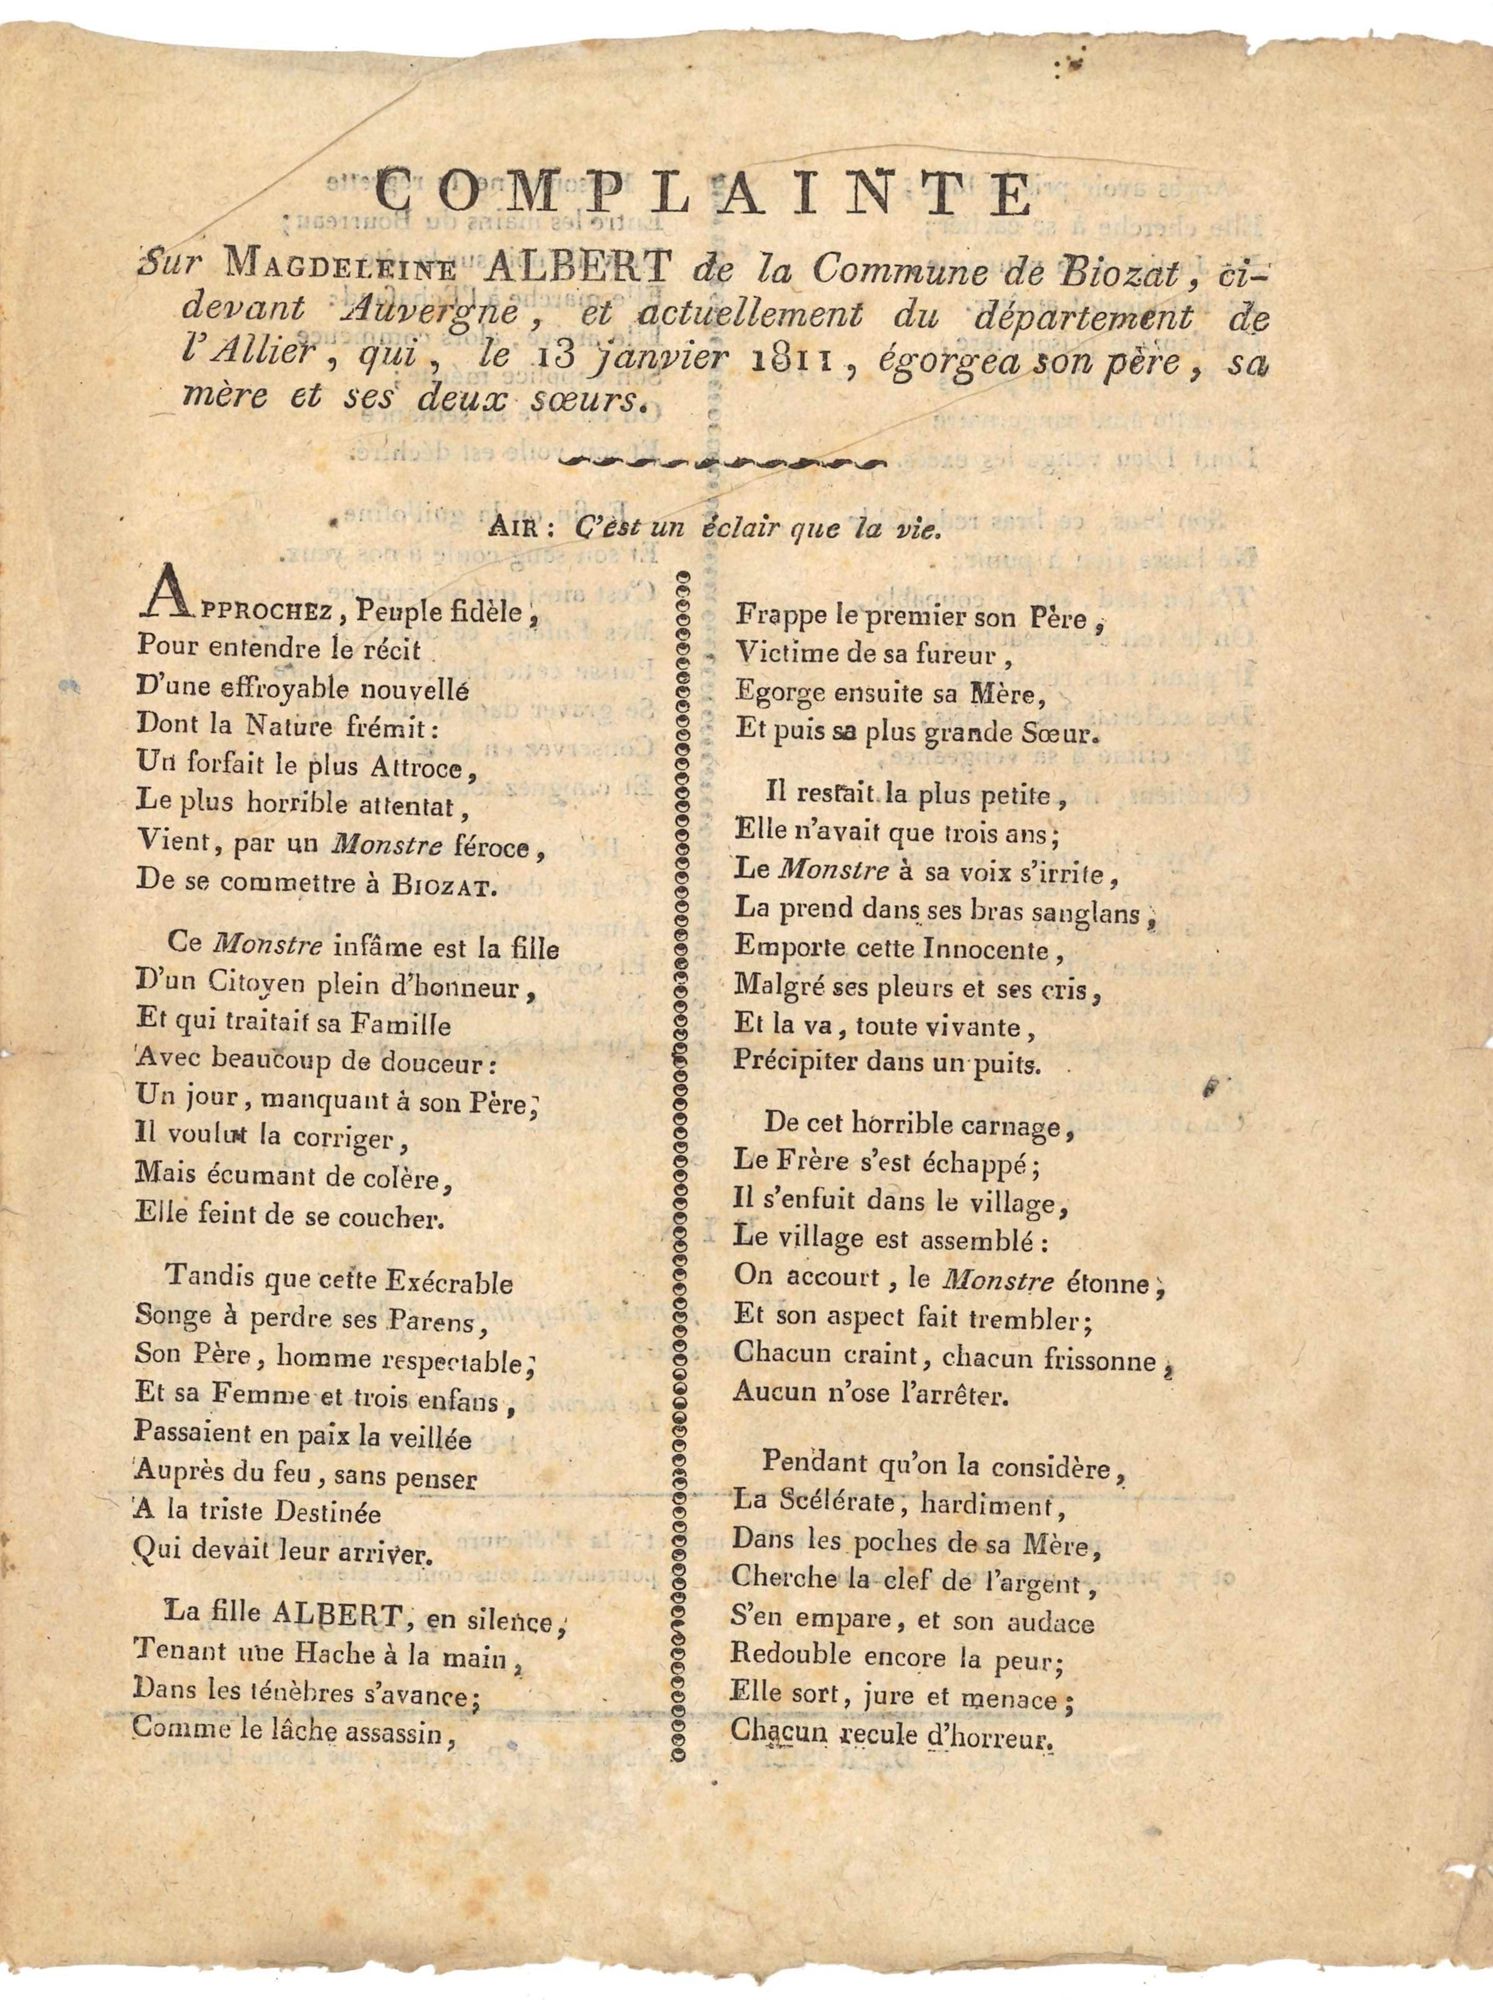 COMPLAINTE
Sur MAGDELEINE ALBERT de la Commune de Biozat, ci-
devant Auvergne, et actuellement du département de
l'Allier, qui, le 13 janvier 1811, égorgea son père, sa
mère et ses deux sœurs.
AIR: C'est un éclair que la vie.
APPROCHEZ, Peuple fidèle,
Pour entendre le récit
D'une effroyable nouvellé
Dont la Nature frémit:
Un forfait le plus Attroce,
Le plus horrible attentat,
Vient, par un Monstre féroce,
De se commettre à BIOZAT.
Ce Monstre infâme est la fille
D'un Citoyen plein d'honneur,
Et qui traitait sa Famille
Avec beaucoup de douceur:
Un jour, manquant à son Père,
Il voulut la corriger,
Mais écumant de colère,
Elle feint de se coucher.
Tandis que cette Exécrable
Songe à perdre ses Parens,
Son Père, homme respectable,
Et sa Femme et trois enfans,
Passaient en paix la veillée
Auprès du feu, sans penser
A la triste Destinée
Qui devait leur arriver.
La fille ALBERT, en silence,
Tenant une Hache à la main,
Dans les ténèbres s'avance;
Comme le lâche assassin,
Frappe le premier son Père,
Victime de sa fureur,
Egorge ensuite sa Mère,
Et puis sa plus grande Sœur.
Il restait la plus petite,
Elle n'avait que trois ans;
Le Monstre à sa voix s'irrite,
La prend dans ses bras sanglans,
Emporte cette Innocente,
Malgré ses pleurs et ses cris,
Et la va, toute vivante,
Précipiter dans un puits.
De cet horrible carnage,
Le Frère s'est échappé;
Il s'enfuit dans le village,
Le village est assemblé:
On accourt, le Monstre étonne,
Et son aspect fait trembler;
Chacun craint, chacun frissonne,
Aucun n'ose l'arrêter.
Pendant qu'on la considère,
La Scélérate, hardiment,
Dans les poches de sa Mère,
Cherche la clef de l'argent,
S'en empare, et son audace
Redouble encore la peur;
Elle sort, jure et menace;
Chacun recule d'horreur.